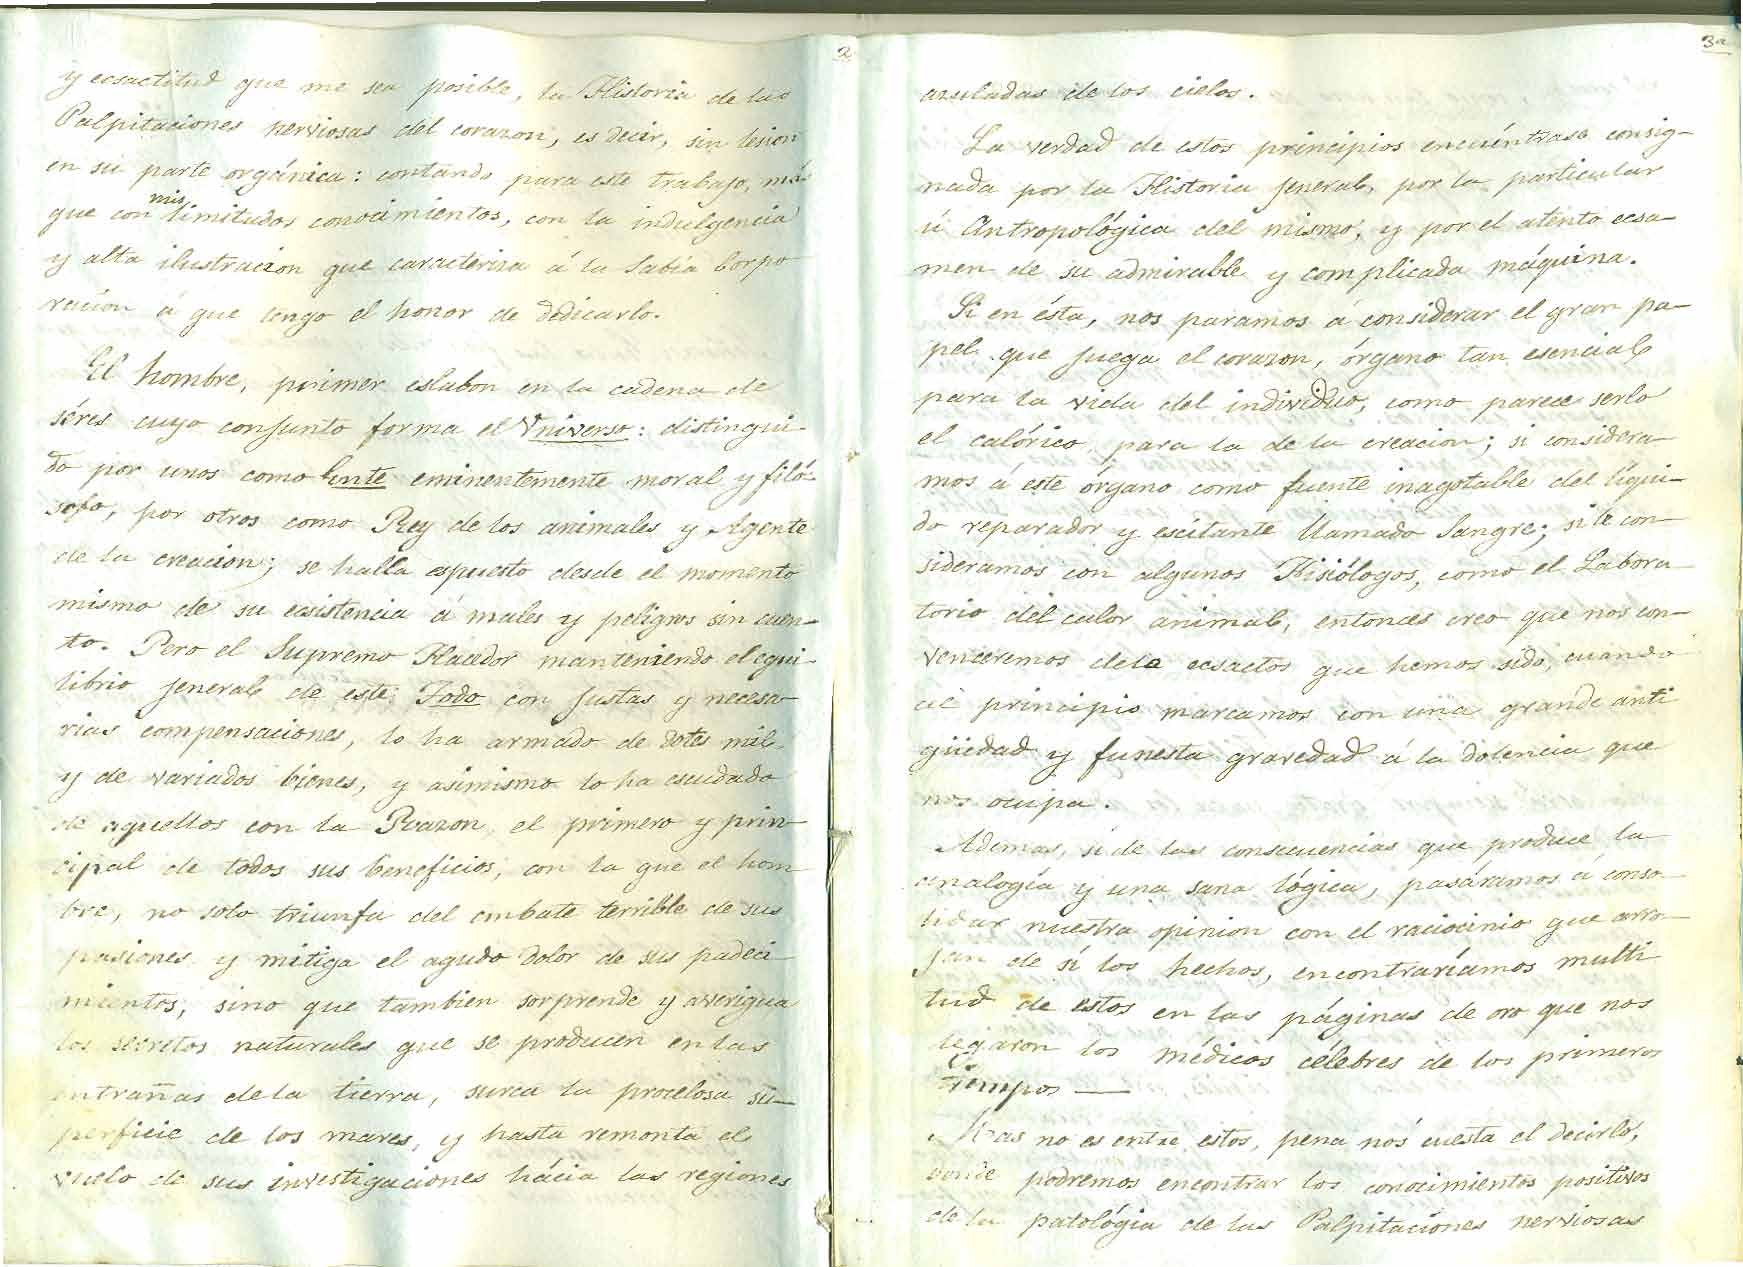 2
y ecsactitud que me sea posible, la Historia de las
Palpitaciones nerviosas del corazon, es decir, sin lesion
en su parte orgánica: contando para este trabajo, más
que con mis limitados conocimientos, con la indulgencia
y alta ilustracion que caracteriza á la Sabia Corpo
racion á que tengo el honor de dedicarlo.
El hombre, primer eslabon en la cadena de
séres cuyo conjunto forma el Universo: distingui-
do por unos como Ente eminentemente moral y filó-
sofo, por otros como Rey de los animales y Agente
de la creacion; se halla espuesto desde el momento
mismo de su ecsistencia á males y peligros sin cuen-
to. Pero el Supremo Hacedor manteniendo el equi-
librio jeneral de este Todo con justas y necesa-
rias compensaciones, lo ha armado de dotes mil
y de variados bienes, y asimismo lo ha escudado
de aquellos con la Razon, el primero y prin-
cipal de todos sus beneficios, con la que el hom
bre, no solo triunfa del embate terrible de sus
pasiones y mitiga el agudo dolor de sus padeci
mientos, sino que tambien sorprende y averigua
los secretos naturales que se producen en las
entrañas de la tierra, surca la procelosa su-
perficie de los mares, y hasta remonta el
vuelo de sus investigaciones hácia las regiones
3a
azuladas de los cielos.
La verdad de estos principios encuéntrase consig-
nada por la Historia jeneral, por la particular
ú Antropológica del mismo, y por el atento ecsa-
men de su admirable y complicada máquina.
Si en ésta, nos paramos á considerar el gran pa-
pel que juega el corazon, órgano tan esencial
para la vida del individuo, como parece serlo
el calórico para la de la creacion; si considera-
mos á este órgano como fuente inagotable del líqui-
do reparador y escitante llamado Sangre; si le con-
sideramos con algunos Fisiólogos, como el Labora-
torio del calor animal, entonces creo que nos con-
venceremos de lo ecsactos que hemos sido, cuando
al principio marcamos con una grande anti
güedad y funesta gravedad á la dolencia que
nos ocupa.
Ademas, si de las consecuencias que produce la
analogía y una sana lógica, pasáramos á conso-
lidar nuestra opinion con el raciocinio que arro-
jan de sí los hechos, encontraríamos multi
tud de estos en las páginas de oro que nos
legaron los médicos célebres de los primeros
tiempos —
Mas no es entre estos, pena nos cuesta el decirlo,
donde podremos encontrar los conocimientos positivos
de la patológia de las Palpitaciones nerviosas